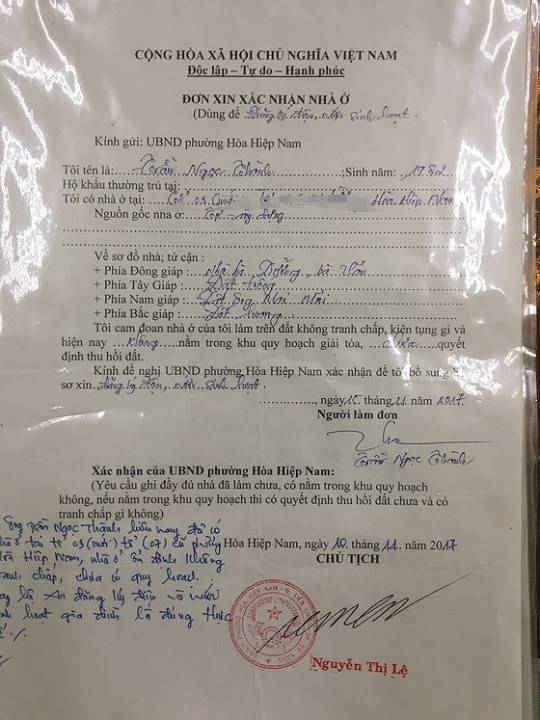 CỘNG HÒA XÃ HỘI CHỦ NGHĨA VIỆT NAM
Độc lập – Tự do – Hạnh phúc
ĐƠN XIN XÁC NHẬN NHÀ Ở
(Dùng để Đăng ký điện, nước sinh hoạt.
Kính gửi: UBND phường Hòa Hiệp Nam
Tôi tên là: Trần Ngọc Thành ;Sinh năm:
Hộ khẩu thường trú tại:
Tôi có nhà ở tại: Tổ Hòa Hiệp Nam
Nguồn gốc nhà ở: xây dựng
Về sơ đồ nhà; tứ cận :
+ Phía Đông giáp : nhà bà Vân
+ Phía Tây Giáp : Đất trống
+ Phía Nam giáp : Đất
+ Phía Bắc giáp : Đất
Tôi cam đoan nhà ở của tôi làm trên đất không tranh chấp, kiện tụng gì và
hiện nay không nằm trong khu quy hoạch giải tỏa, chưa quyết
định thu hồi đất.
Kính đề nghị UBND phường Hòa Hiệp Nam xác nhận để tôi bổ sung
sơ xin đăng ký điện, nước sinh hoạt.
, ngày tháng 11 năm 2017
Người làm đơn
Trần Ngọc Thành
Xác nhận của UBND phường Hòa Hiệp Nam:
(Yêu cầu ghi đầy đủ nhà đã làm chưa, có nằm trong khu quy hoạch
không, nếu nằm trong khu quy hoạch thì có quyết định thu hồi đất chưa và có
tranh chấp gì không)
Ông Trần Ngọc Thành hiện nay đã có
tổ phường
Hòa Hiệp Nam, nhà ở ổn định không
tranh chấp, chưa có quy hoạch.
đăng ký điện và nước
sinh hoạt gia đình là đúng thực
Hòa Hiệp Nam, ngày 10 tháng 11 năm 2017
CHỦ TỊCH
Nguyễn Thị Lệ